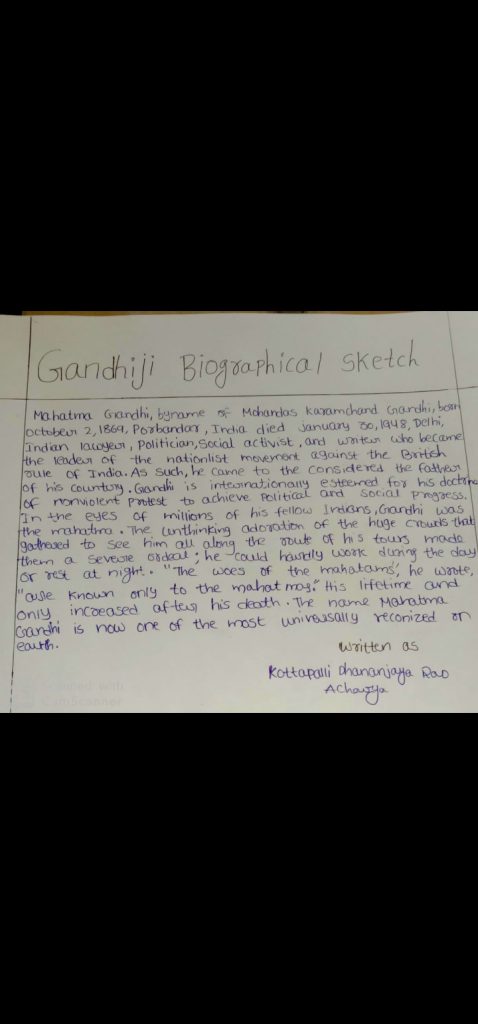 Gandhiji Biographical Sketch
Mahatma Gandhi, byname of Mohandas Karamchand Gandhi, born
october 2, 1869, Porbandar, India died january 30, 1948, Delhi,
Indian lawyer, Politician, Social activist, and writer who became
the leader of the nationlist movement against the British
rule of India. As such, he came to the considered the father
of his country. Gandhi is internationally esteemed for his doctrine
of nonviolent Protest to achieve Political and Social Progress.
In the eyes of millions of his fellow Indians, Gandhi was
the mahatma. The unthinking adoration of the huge crowds that
gathered to see him all along the route of his tours made
them a severe ordeal; he could hardly work during the day
or rest at night. "The woes of the mahatams", he wrote,
"are known only to the mahatmas." His lifetime and
only increased after his death. The name Mahatma
Gandhi is now one of the most universally reconized on
earth.
written as
Kottapalli Dhananjaya Rao
Acharya
Scanned with
CamScanner